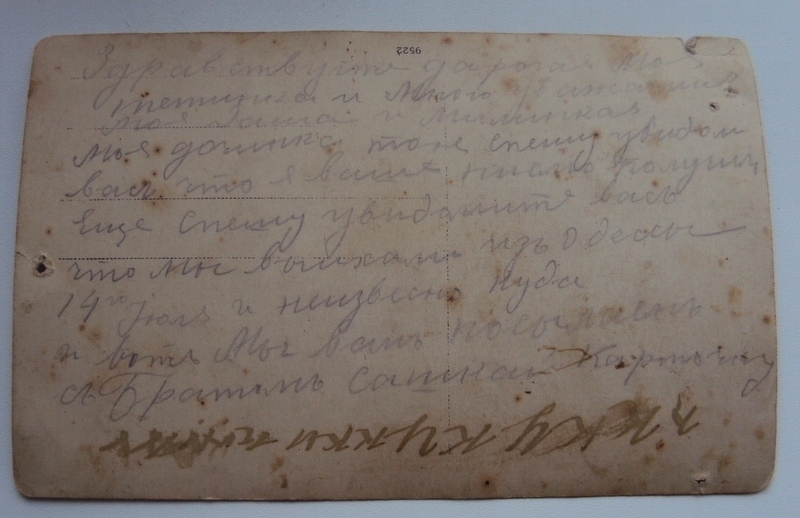 9522
Здравствуите дарогая Моя
тетинка и Много уважаимая
Моя Саша и Милинкая
Моя дочинка тоня спешу увидом
вась что я ваше письмо получил
Еще спешу увидомить вась
что мы выихали изъ Одессы
14го Июля и неизвесно куда
и воть Мы вамъ посылаемъ
съ Братомъ Сашкай Карточку